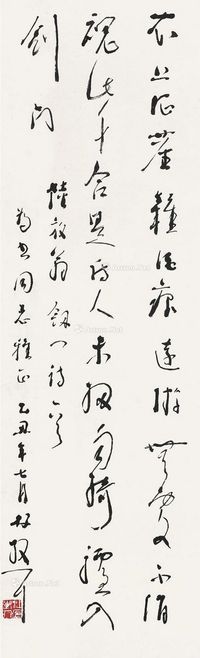 衣上征塵雜酒痕遠遊無處不消
魂此身合是詩人未細雨騎驢入
劍門
陸放翁劍門詩
同志雅正乙丑年七月林散耳